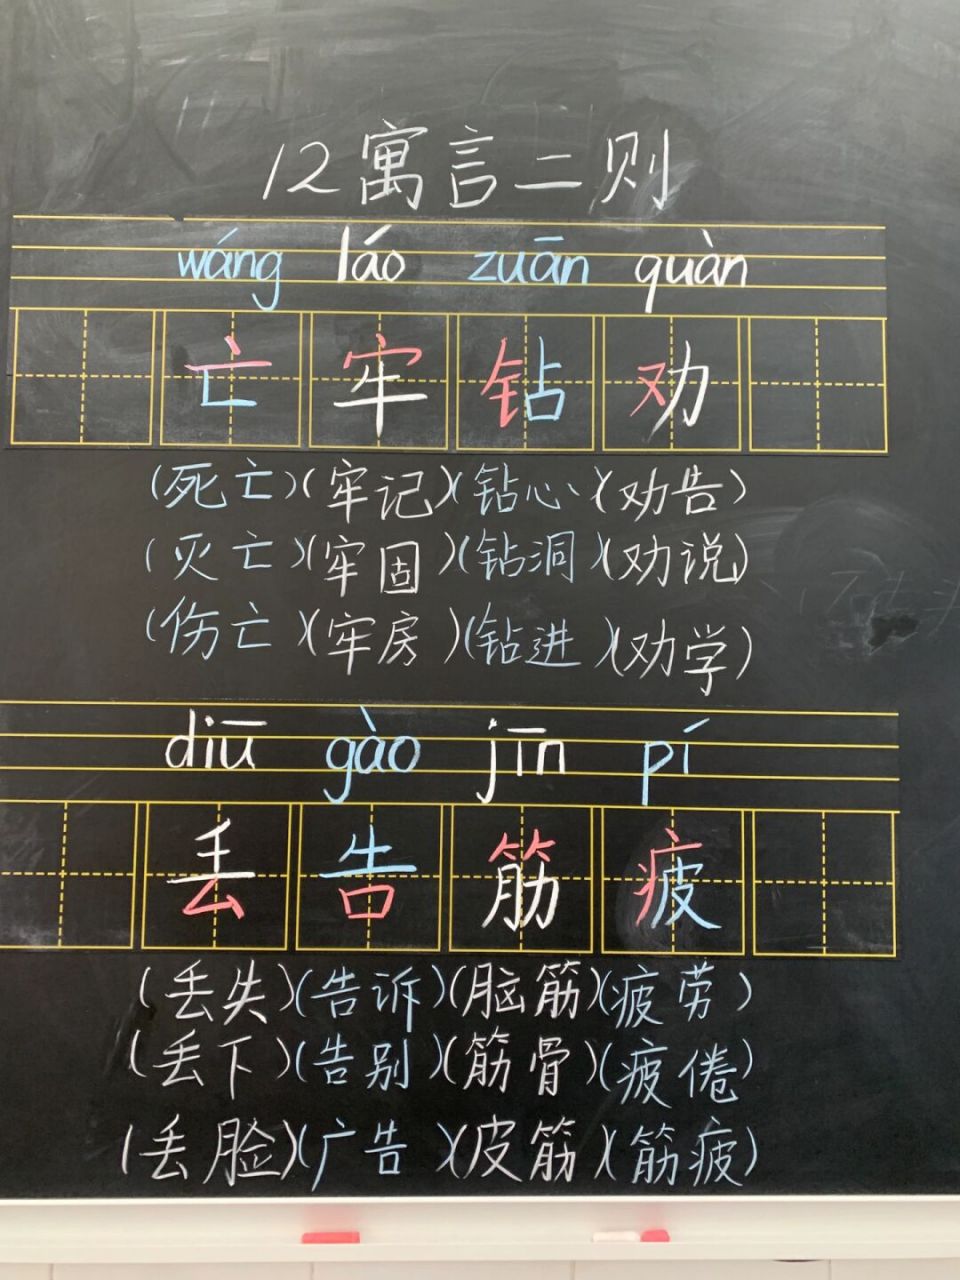 12寓言二则
wáng láo zuān quàn
亡牢钻劝
(死亡)(牢记)(钻心)(劝告)
(灭亡)(牢固)(钻洞)(劝说)
(伤亡)(牢房)(钻进)(劝学)
diū gào jīn pí
丢告筋疲
(丢失)(告诉)(脑筋)(疲劳)
(丢下)(告别)(筋骨)(疲倦)
(丢脸)(广告)(皮筋)(筋疲)